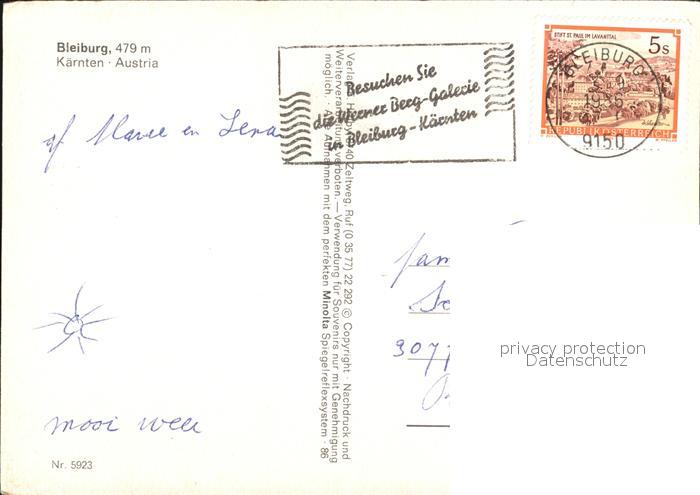 Bleiburg, 479 m
Kärnten · Austria
Besuchen Sie
die Werner Berg-Galerie
in Bleiburg-Kärnten
STIFT ST. PAUL IM LAVANTTAL
5s
REPUBLIK ÖSTERREICH
BLEIBURG
9150
mooi weer
Nr. 5923
40 Zeltweg, Ruf (0 35 77) 22 292 © Copyright · Nachdruck und
verboten. — Verwendung für Souvenirs nur mit Genehmigung
möglich. Aufnahmen mit dem perfekten Minolta Spiegelreflexsystem · 86
Fam
privacy protection
Datenschutz